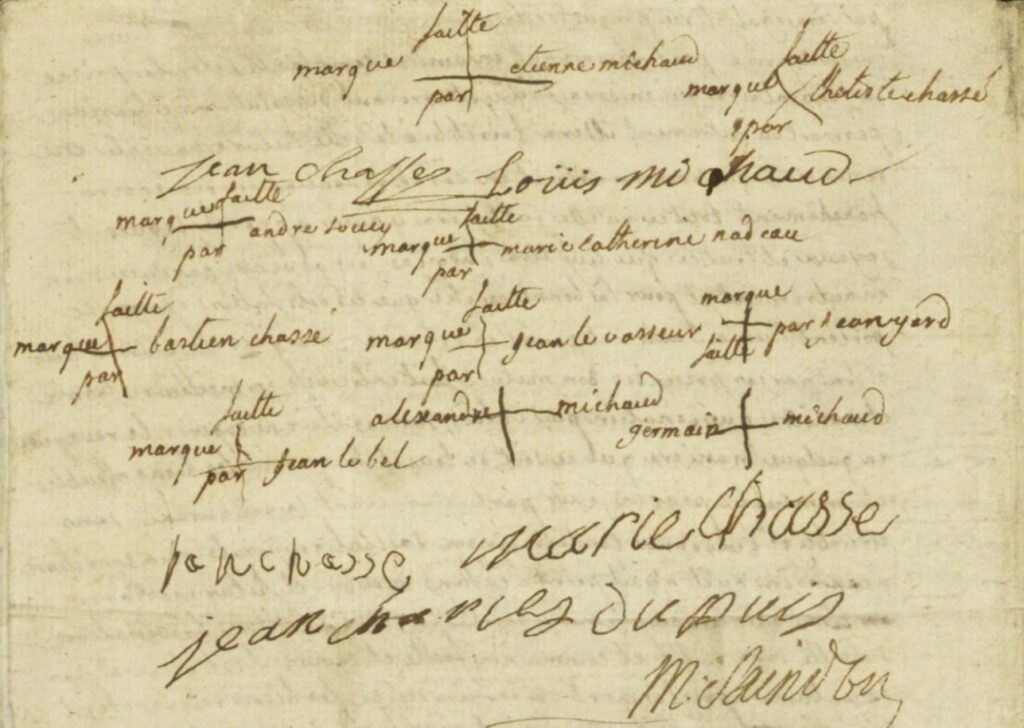 marque faitte par etienne michaud
marque faitte par chassé
jean chasse Louis michaud
marque faitte par andre soucy
marque faitte par marie catherine nadeau
marque faitte par bastien chassé
marque faitte par jean le vasseur
marque faitte par jean yard
marque faitte par jean le bel
alexandre michaud
germain michaud
marie Chasse
jean charles dupuis